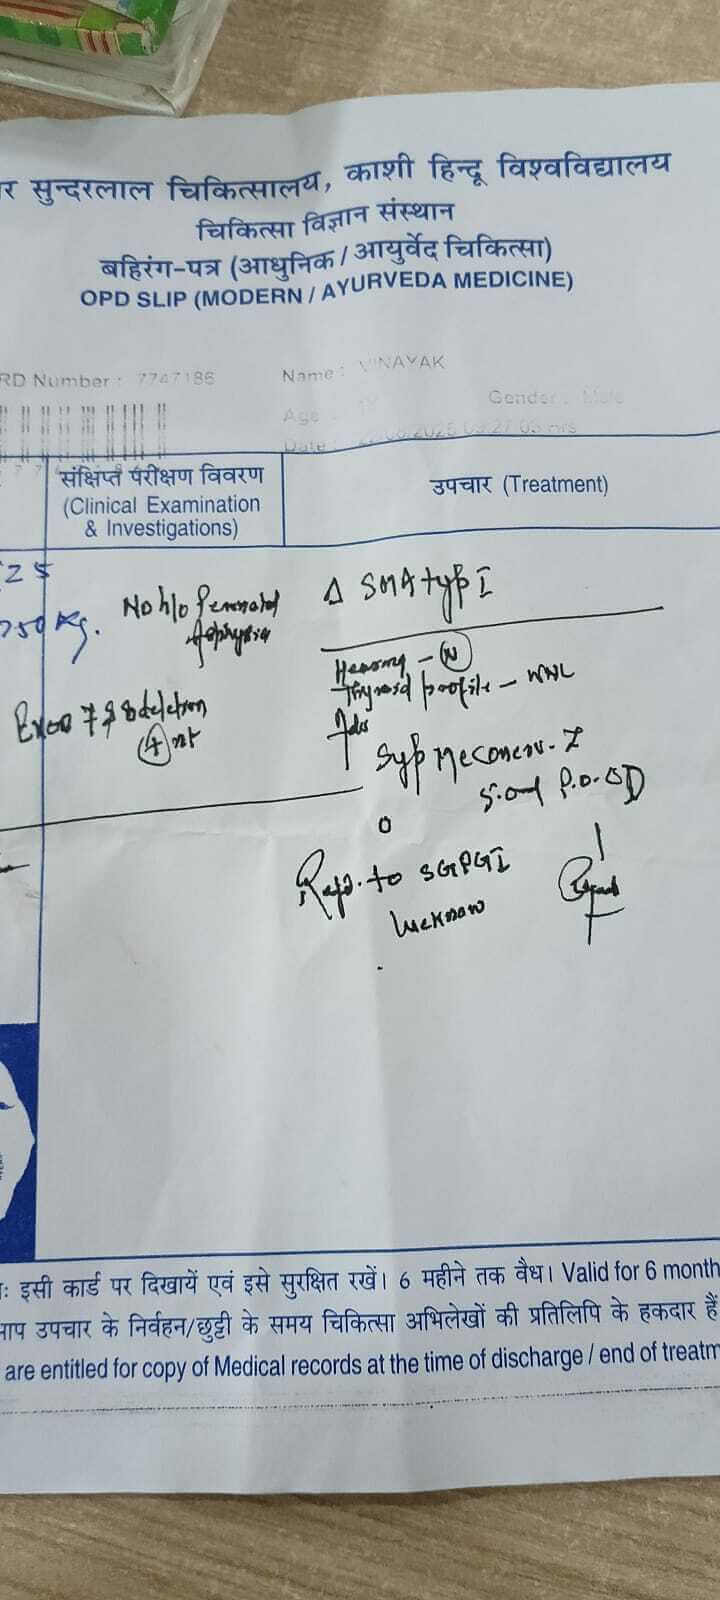 र सुन्दरलाल चिकित्सालय, काशी हिन्दू विश्वविद्यालय
चिकित्सा विज्ञान संस्थान
बहिरंग-पत्र (आधुनिक / आयुर्वेद चिकित्सा)
OPD SLIP (MODERN / AYURVEDA MEDICINE)
RD Number : 7747186
Name : VINAYAK
Age
Gender : Male
Date
संक्षिप्त परीक्षण विवरण
(Clinical Examination
& Investigations)
उपचार (Treatment)
25
Kg.
No h/o
Δ SMA typ I
Hearing - N
Thyroid profile - WNL
Exon 7 & 8 deletion
Adv
Syp
5 ml P.O. OD
Refd. to SGPGI
Lucknow
इसी कार्ड पर दिखायें एवं इसे सुरक्षित रखें। 6 महीने तक वैध। Valid for 6 month
आप उपचार के निर्वहन/छुट्टी के समय चिकित्सा अभिलेखों की प्रतिलिपि के हकदार हैं
are entitled for copy of Medical records at the time of discharge / end of treatm